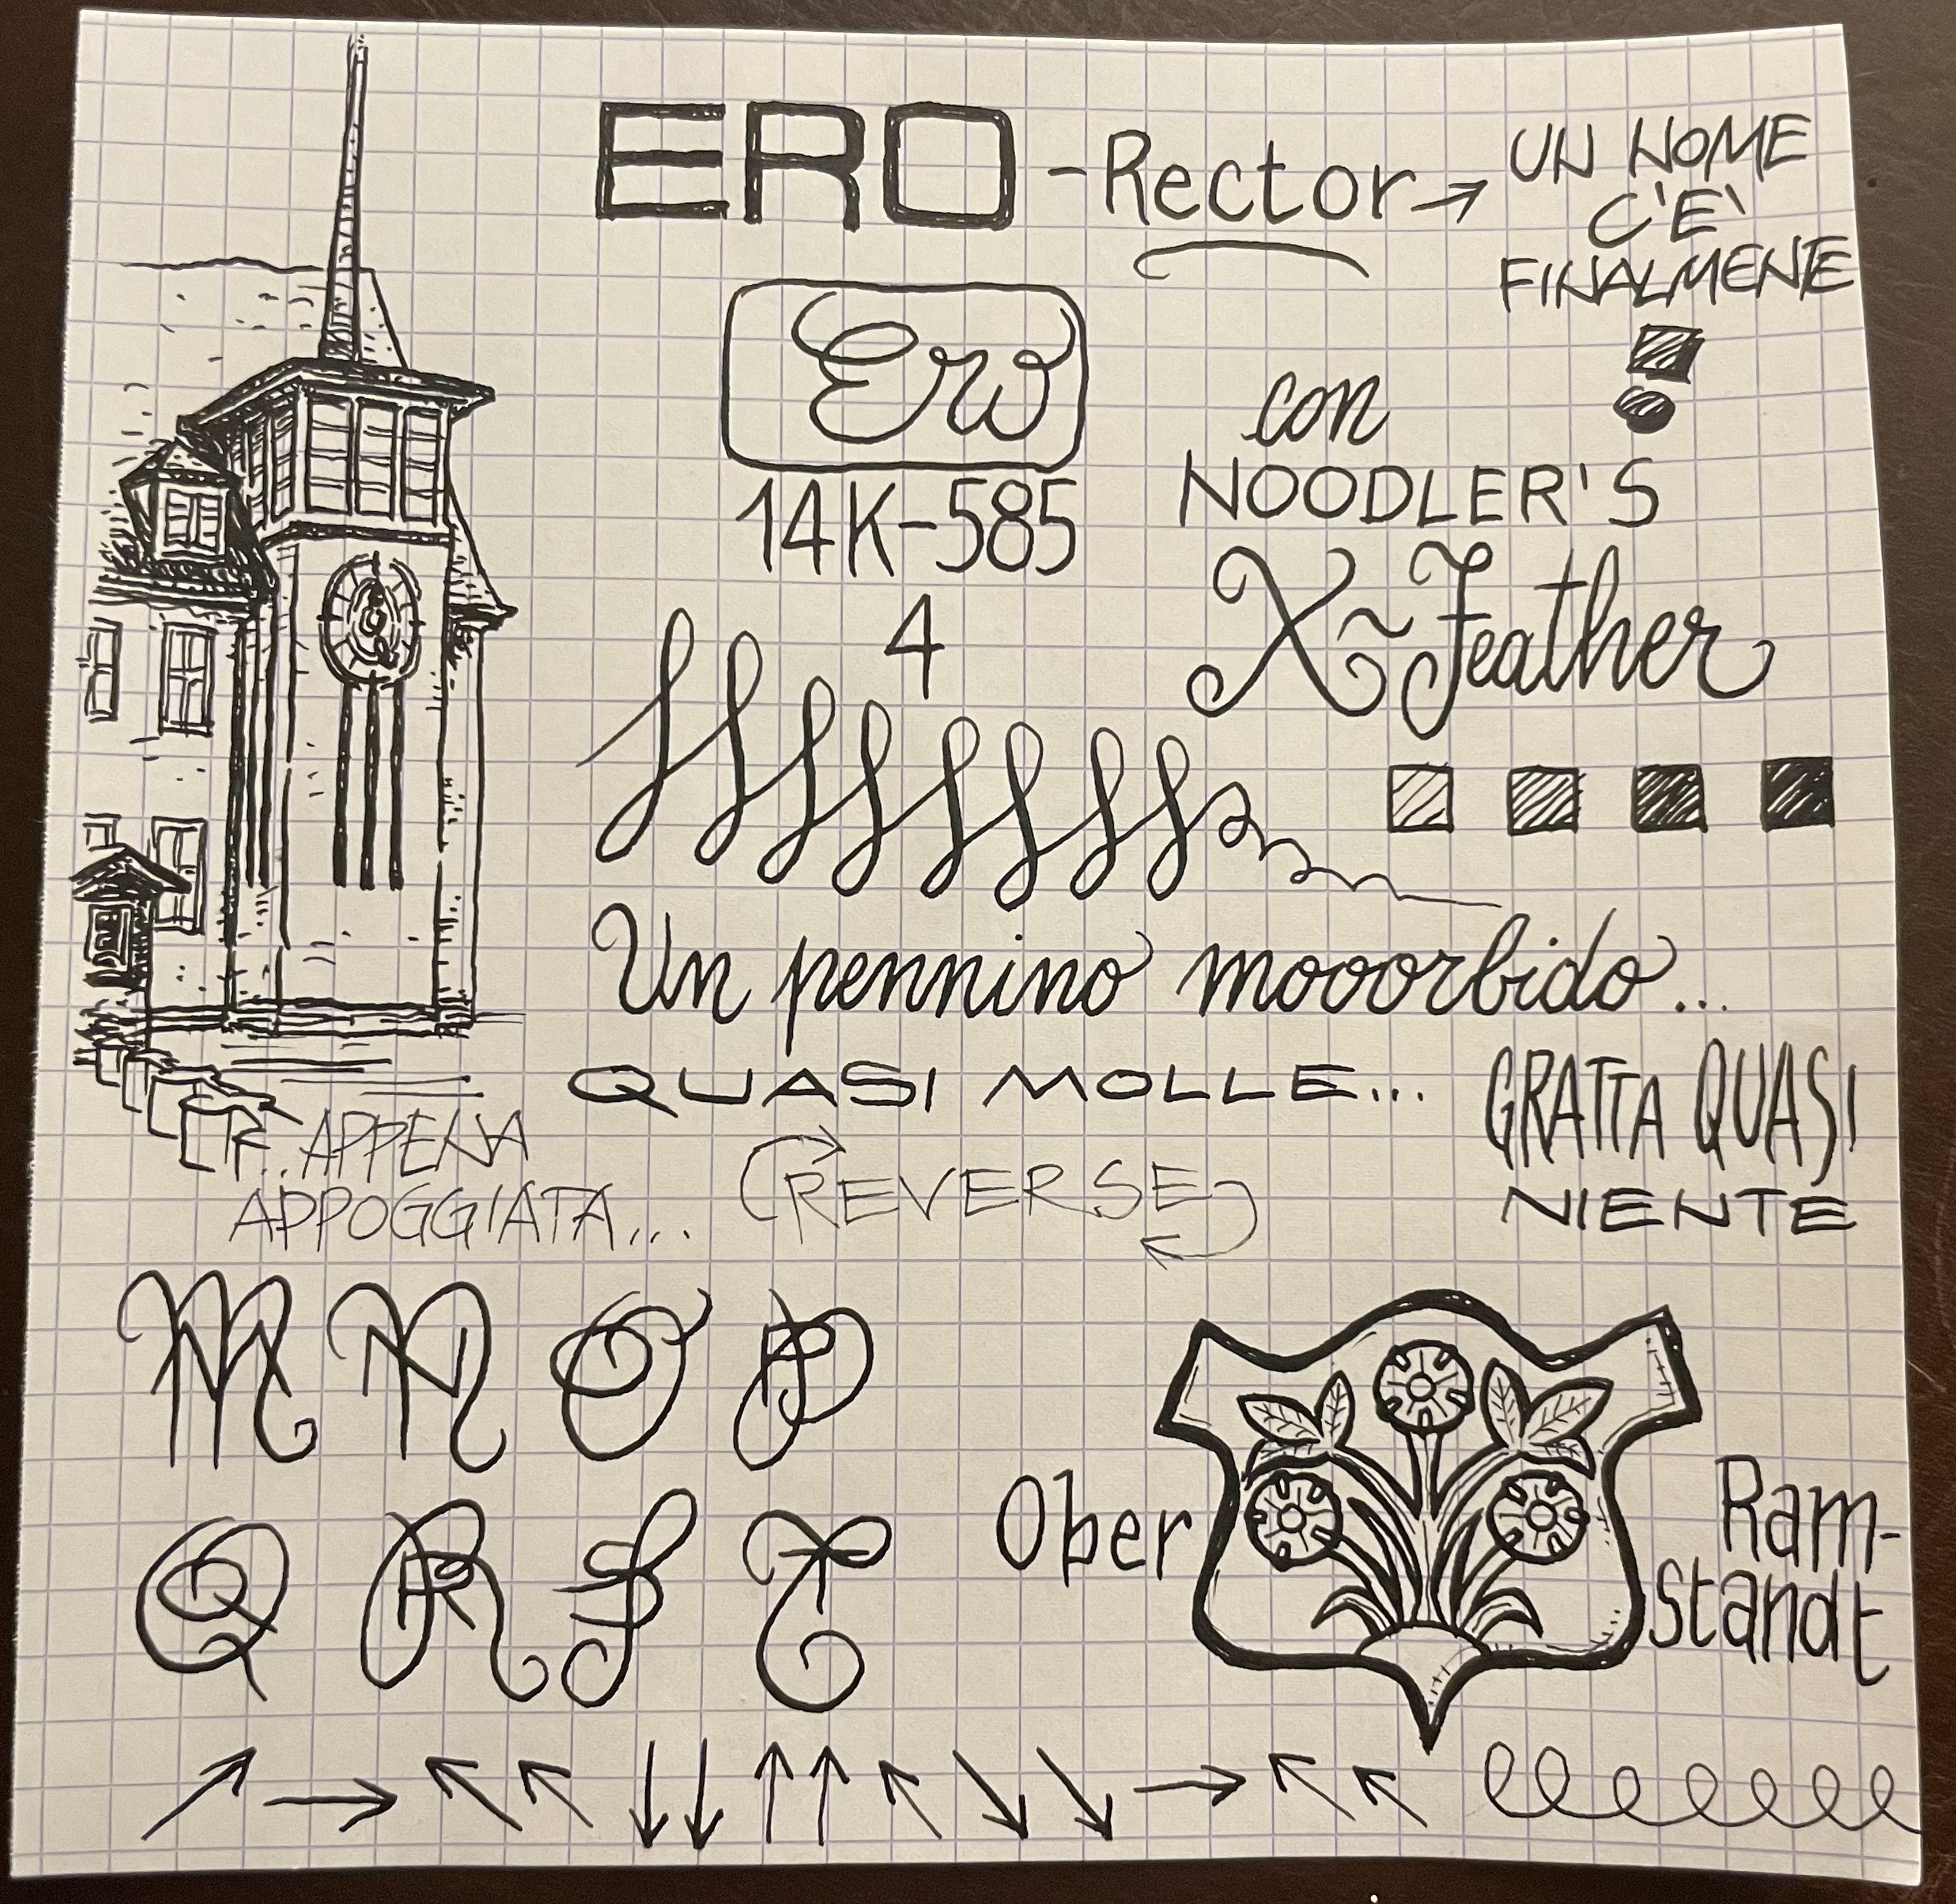 ERO - Rector → UN NOME
C'E'
FINALMENTE
Ero
14K-585
4
con
NOODLER'S
X~Feather
Un pennino mooorbido...
QUASI MOLLE...
GRATTA QUASI
NIENTE
F..APPENA
APPOGGIATA...
REVERSE
M N O P
Q R S T
Ober
Ram-
standt
↗ → ↖ ↖ ↓ ↓ ↑ ↑ ↖ ↘ ↘ → ↖ ↖